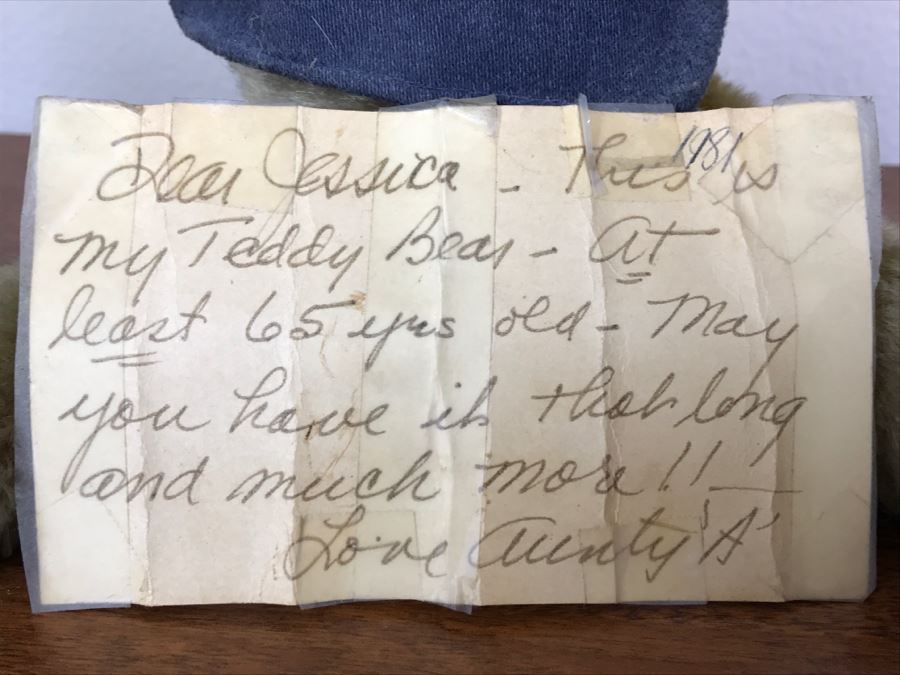 Dear Jessica - This is
1981
my Teddy Bear - At
least 65 yrs old - May
you have it that long
and much more!!
Love Aunty 'A'